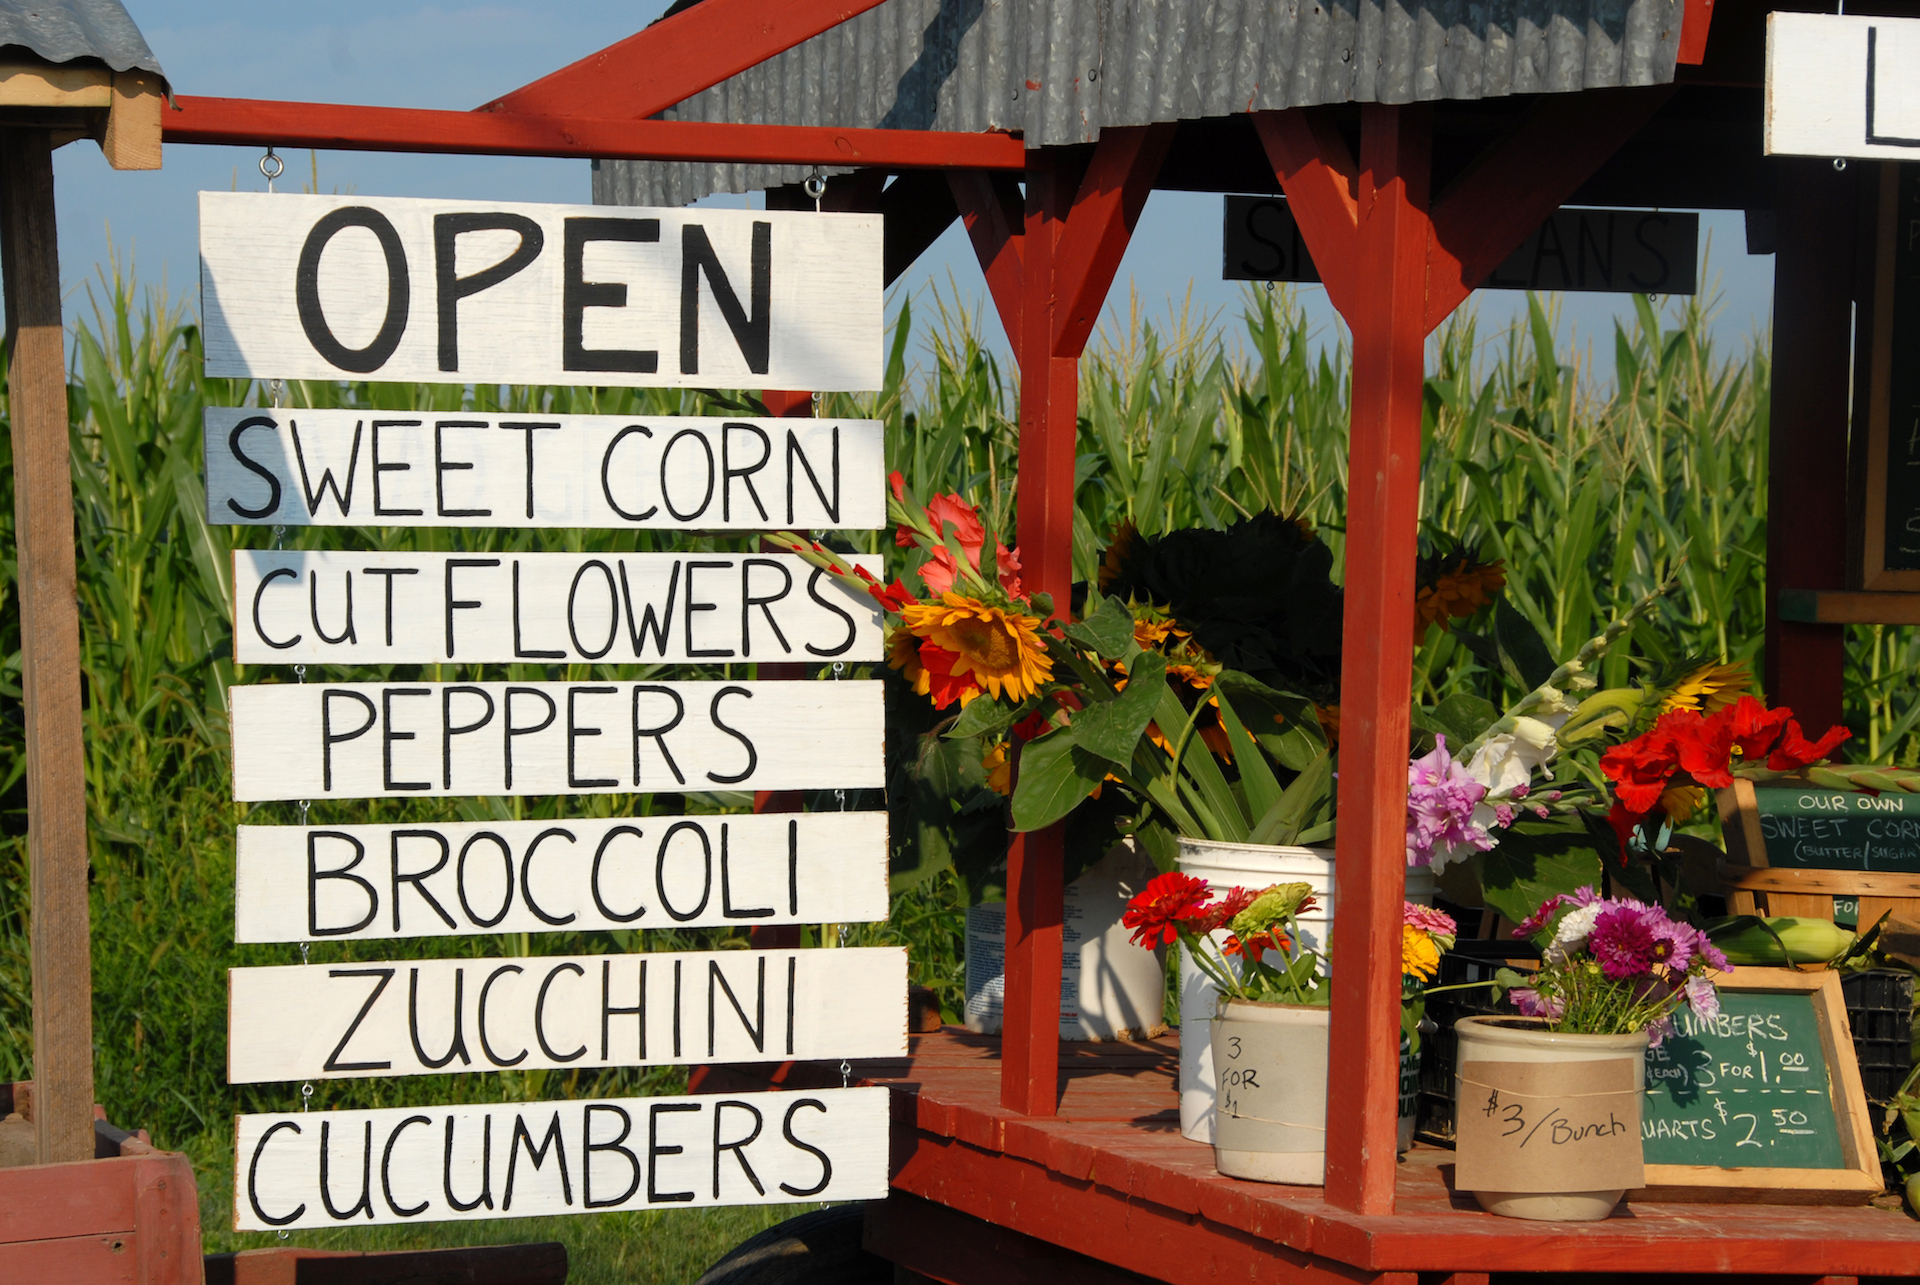 OPEN
SWEET CORN
CUT FLOWERS
PEPPERS
BROCCOLI
ZUCCHINI
CUCUMBERS
L
S EANS
OUR OWN
SWEET CORN
(BUTTER/SUGAR
FOR
UMBERS
GE
EACH) 3 FOR $1.00
UARTS $2.50
3
FOR
$1
$3/Bunch